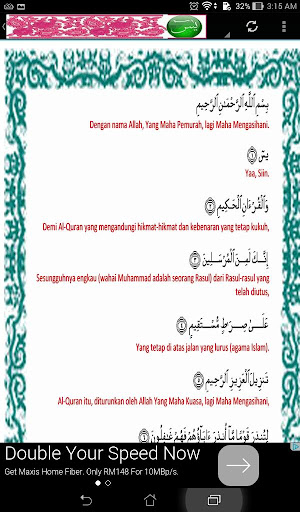 32% 3:15 AM
يس
بِسْمِ ٱللَّهِ ٱلرَّحْمَـٰنِ ٱلرَّحِيمِ
Dengan nama Allah, Yang Maha Pemurah, lagi Maha Mengasihani.
يسٓ ١
Yaa, Siin.
وَٱلْقُرْءَانِ ٱلْحَكِيمِ ٢
Demi Al-Quran yang mengandungi hikmat-hikmat dan kebenaran yang tetap kukuh,
إِنَّكَ لَمِنَ ٱلْمُرْسَلِينَ ٣
Sesungguhnya engkau (wahai Muhammad adalah seorang Rasul) dari Rasul-rasul yang
telah diutus,
عَلَىٰ صِرَٰطٍ مُّسْتَقِيمٍ ٤
Yang tetap di atas jalan yang lurus (agama Islam).
تَنزِيلَ ٱلْعَزِيزِ ٱلرَّحِيمِ
Al-Quran itu, diturunkan oleh Allah Yang Maha Kuasa, lagi Maha Mengasihani,
لِتُنذِرَ قَوْمًا مَّآ أُنذِرَ ءَابَآؤُهُمْ فَهُمْ غَـٰفِلُونَ
Double Your Speed Now
Get Maxis Home Fiber. Only RM148 For 10MBp/s.